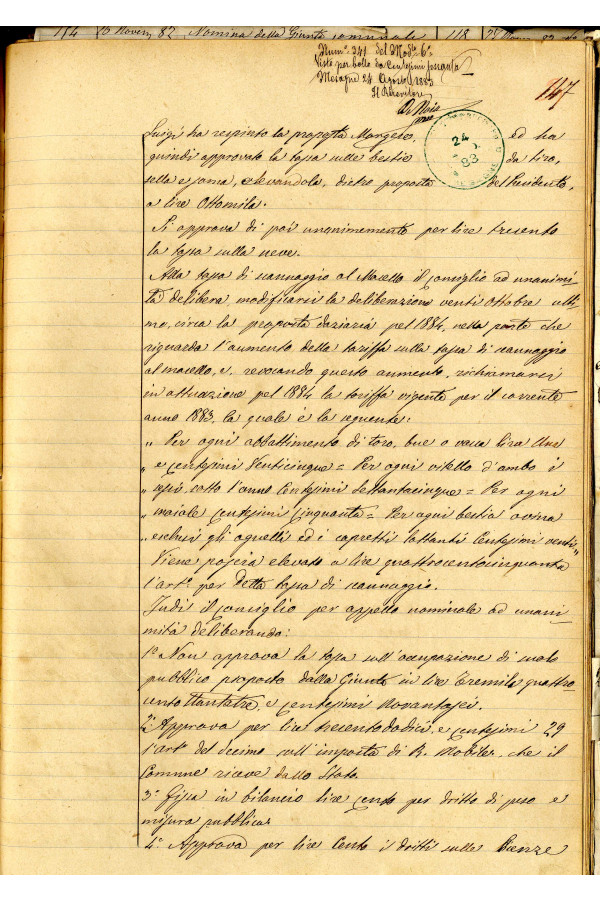 114 10 Novem. 82 Nomina della Giunta comunale 118
Num.° 341 del Mod.° 6°
Visto per bollo da Centesimi sessanta
24 Agosto 1883
Il Ricevitore
147
24
83
Luigi ha respinto la proposta Mongero, ed ha
quindi approvato la tassa sulle bestie da tiro,
sella e soma, elevandola, dietro proposta del Presidente,
a lire Ottomila.
Si approva di poi unanimemente per lire trecento
la tassa sulla neve.
Alla tassa di scannaggio al Macello il Consiglio ad unanimi-
tà delibera, modificarsi la deliberazione venti Ottobre ulti-
mo, circa la proposta daziaria pel 1884, nella parte che
riguarda l'aumento della tariffa sulla tassa di scannaggio
al macello, e, revocando questo aumento, richiamarsi
in attuazione pel 1884 la tariffa vigente per il corrente
anno 1883, la quale è la seguente:
" Per ogni abbattimento di toro, bue o vacca lira Una
" e Centesimi Venticinque = Per ogni vitello d'ambo i
" sessi, sotto l'anno Centesimi Settantacinque = Per ogni
" maiale Centesimi Cinquanta = Per ogni bestia ovina
" esclusi gli agnelli ed i capretti lattanti Centesimi venti "
Viene poscia elevato a lire quattrocentocinquanta
l'art.° per detta tassa di scannaggio.
Indi il Consiglio per appello nominale ad unani-
mità deliberando:
1° Non approva la tassa sull'occupazione di suolo
pubblico proposta dalla Giunta in lire Tremila quattro
cento Ottantatre, e Centesimi Novantasei.
2° Approva per lire trecentododici, e Centesimi 29
l'art.° del decimo sull'imposta di R. Mobile, che il
Comune riceve dallo Stato.
3° Fissa in bilancio lire Cento per dritto di peso e
misura pubblica.
4° Approva per lire Cento i dritti sulle licenze